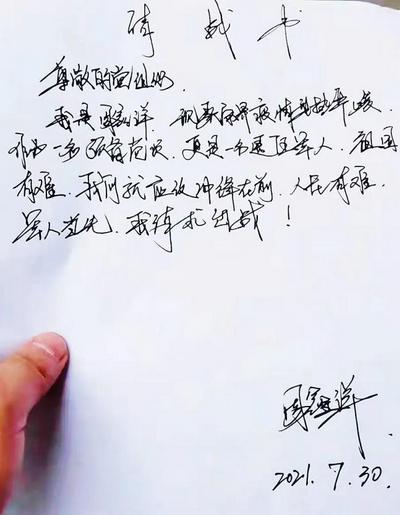 请战书
尊敬的党组织：
我是周  洋 现 家界疫情 严峻，
作为一名 党员，更是一名退役军人，祖国
有难，我们就应该冲锋在前，人民有难，
军人当先，我请求出战！
周 洋
2021.7.30.